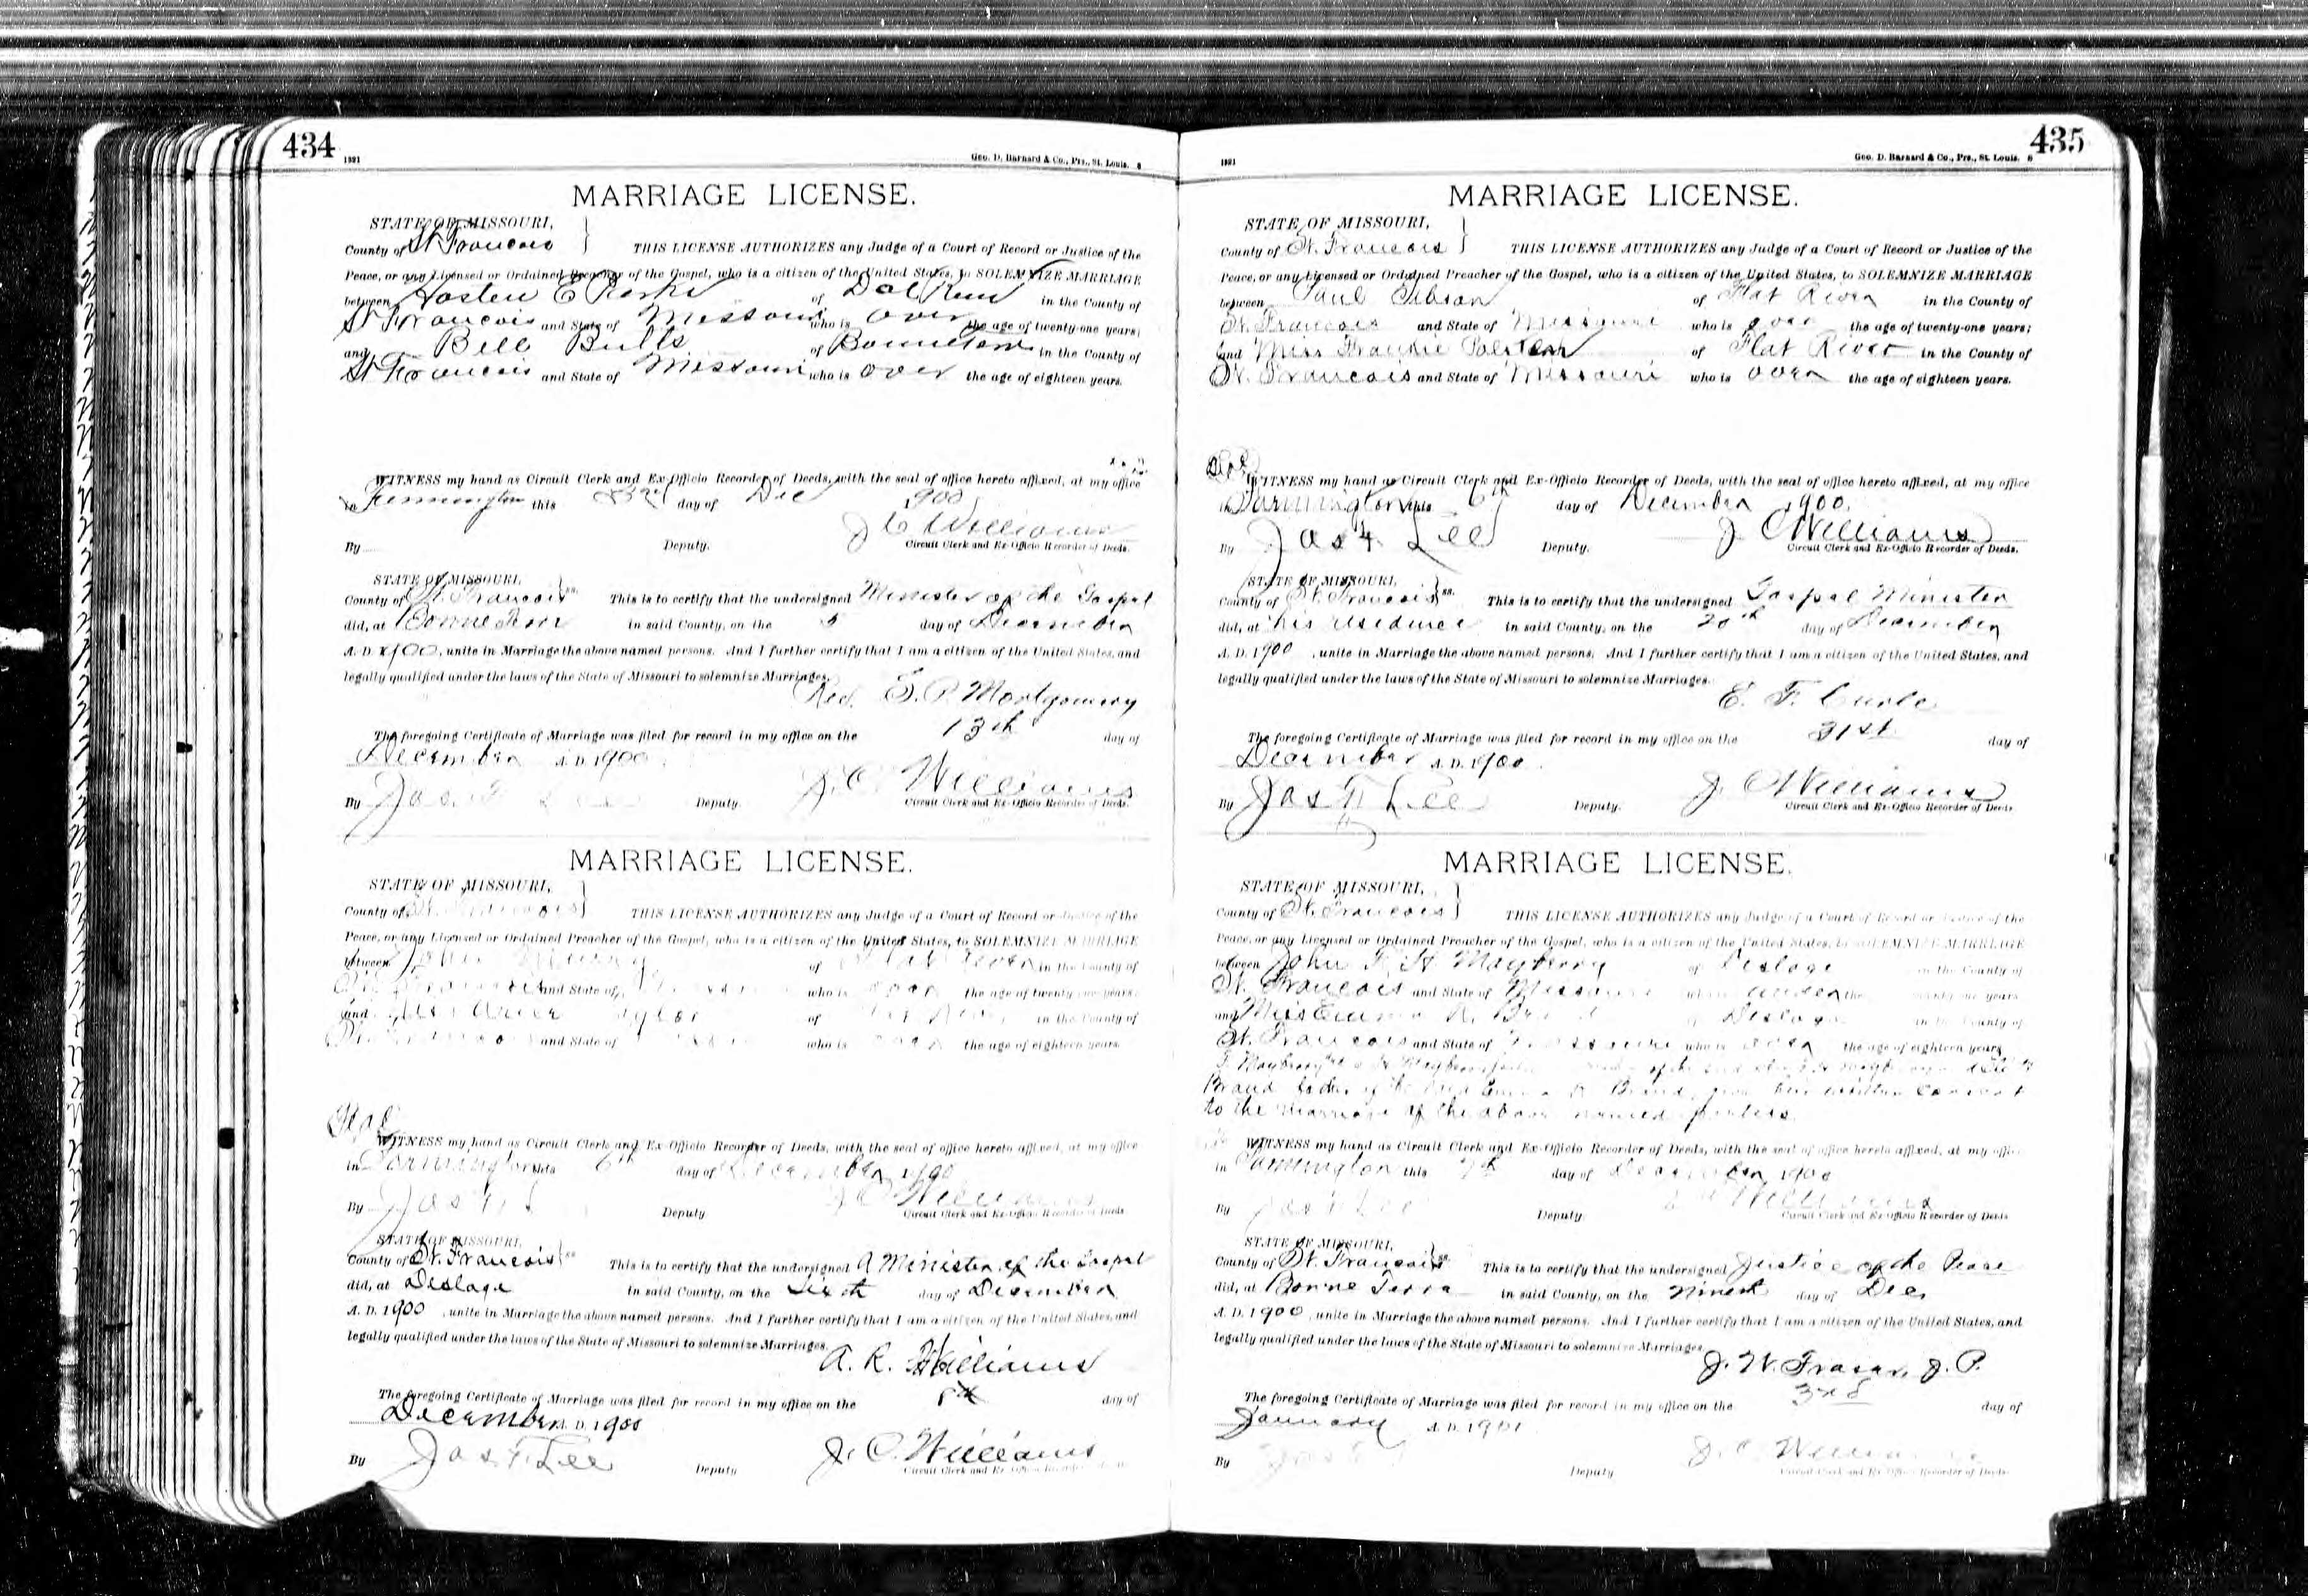 434
1321
Geo. D. Barnard & Co., Prs., St. Louis. 6
MARRIAGE LICENSE.
STATE OF MISSOURI,
County of St Francois THIS LICENSE AUTHORIZES any Judge of a Court of Record or Justice of the
Peace, or any Licensed or Ordained Preacher of the Gospel, who is a citizen of the United States, to SOLEMNIZE MARRIAGE
between E of Doe Run in the County of
St Francois and State of Missouri who is over the age of twenty-one years;
and Bell of in the County of
St Francois and State of Missouri who is over the age of eighteen years.
WITNESS my hand as Circuit Clerk and Ex-Officio Recorder of Deeds, with the seal of office hereto affixed, at my office
in this day of Dec 1900
J C Williams
By Deputy. Circuit Clerk and Ex-Officio Recorder of Deeds.
STATE OF MISSOURI,
County of St. Francois ss. This is to certify that the undersigned Minister of the Gospel
did, at Bonne Terre in said County, on the 5 day of December
A. D. 1900, unite in Marriage the above named persons. And I further certify that I am a citizen of the United States, and
legally qualified under the laws of the State of Missouri to solemnize Marriages.
Montgomery
The foregoing Certificate of Marriage was filed for record in my office on the 13th day of
December A. D. 1900
J. C. Williams
By Jas. F. Lee Deputy. Circuit Clerk and Ex-Officio Recorder of Deeds.
MARRIAGE LICENSE.
STATE OF MISSOURI,
County of St. Francois THIS LICENSE AUTHORIZES any Judge of a Court of Record or Justice of the
Peace, or any Licensed or Ordained Preacher of the Gospel, who is a citizen of the United States, to SOLEMNIZE MARRIAGE
between of Flat River in the County of
and State of who is over the age of twenty-one years
and of in the County of
and State of who is over the age of eighteen years.
Seal
WITNESS my hand as Circuit Clerk and Ex-Officio Recorder of Deeds, with the seal of office hereto affixed, at my office
in Farmington this 6th day of December 1900
J C Williams
By Deputy Circuit Clerk and Ex-Officio Recorder of Deeds
STATE OF MISSOURI,
County of St. Francois ss This is to certify that the undersigned A Minister of the Gospel
did, at Desloge in said County, on the Sixth day of December
A. D. 1900, unite in Marriage the above named persons. And I further certify that I am a citizen of the United States, and
legally qualified under the laws of the State of Missouri to solemnize Marriages.
A. R. Williams
The foregoing Certificate of Marriage was filed for record in my office on the 8th day of
December A. D. 1900
J. C. Williams
By Jas. F. Lee Deputy Circuit Clerk and Ex-Officio Recorder of Deeds
435
1321
Geo. D. Barnard & Co., Prs., St. Louis. 6
MARRIAGE LICENSE.
STATE OF MISSOURI,
County of St. Francois THIS LICENSE AUTHORIZES any Judge of a Court of Record or Justice of the
Peace, or any Licensed or Ordained Preacher of the Gospel, who is a citizen of the United States, to SOLEMNIZE MARRIAGE
between Paul Gibson of Flat River in the County of
St. Francois and State of Missouri who is over the age of twenty-one years;
and Miss of Flat River in the County of
St. Francois and State of Missouri who is over the age of eighteen years.
Seal
WITNESS my hand as Circuit Clerk and Ex-Officio Recorder of Deeds, with the seal of office hereto affixed, at my office
in Farmington this 6th day of December 1900.
J C Williams
By Jas F. Lee Deputy. Circuit Clerk and Ex-Officio Recorder of Deeds.
STATE OF MISSOURI,
County of St. Francois ss. This is to certify that the undersigned Gospel Minister
did, at his residence in said County, on the day of December
A. D. 1900, unite in Marriage the above named persons, And I further certify that I am a citizen of the United States, and
legally qualified under the laws of the State of Missouri to solemnize Marriages.
E. F.
The foregoing Certificate of Marriage was filed for record in my office on the 31st day of
December A. D. 1900.
J. C Williams
By Jas F. Lee Deputy. Circuit Clerk and Ex-Officio Recorder of Deeds
MARRIAGE LICENSE.
STATE OF MISSOURI,
County of St. Francois THIS LICENSE AUTHORIZES any Judge of a Court of Record or Justice of the
Peace, or any Licensed or Ordained Preacher of the Gospel, who is a citizen of the United States, to SOLEMNIZE MARRIAGE
between John Mayberry of Desloge in the County of
St. Francois and State of Missouri who is under the twenty one years
and Miss Emma of Desloge in the County of
St. Francois and State of Missouri who is the age of eighteen years
written consent
to the marriage of the above named parties.
WITNESS my hand as Circuit Clerk and Ex-Officio Recorder of Deeds, with the seal of office hereto affixed, at my office
in Farmington this 7th day of December 1900
Williams
By Deputy. Circuit Clerk and Ex-Officio Recorder of Deeds
STATE OF MISSOURI,
County of St. Francois ss. This is to certify that the undersigned Justice of the Peace
did, at Bonne Terre in said County, on the day of Dec
A. D. 1900, unite in Marriage the above named persons. And I further certify that I am a citizen of the United States, and
legally qualified under the laws of the State of Missouri to solemnize Marriages.
J. P.
The foregoing Certificate of Marriage was filed for record in my office on the 3rd day of
January A. D. 1901
J. C. Williams
By Deputy Circuit Clerk and Ex-Officio Recorder of Deeds